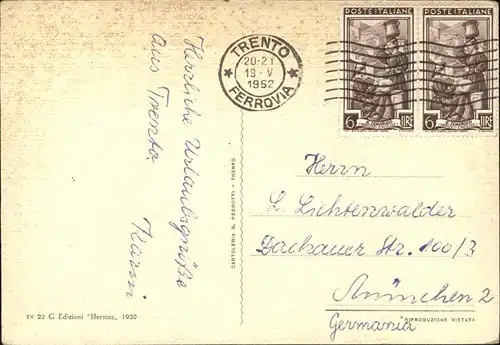 POSTE ITALIANE
POSTE ITALIANE
6 LIRE
6 LIRE
TRENTO
20-21
19·V
1952
FERROVIA
Herrliche Urlaubsgrüße
aus Trento.
Karin
Herrn
L. Lichtenwalder
Dachauer Str. 100/3
München 2
Germania
CARTOLERIA G. PEDROTTI - TRENTO
22 G Edizioni "Hermes„ 1950
RIPRODUZIONE VIETATA